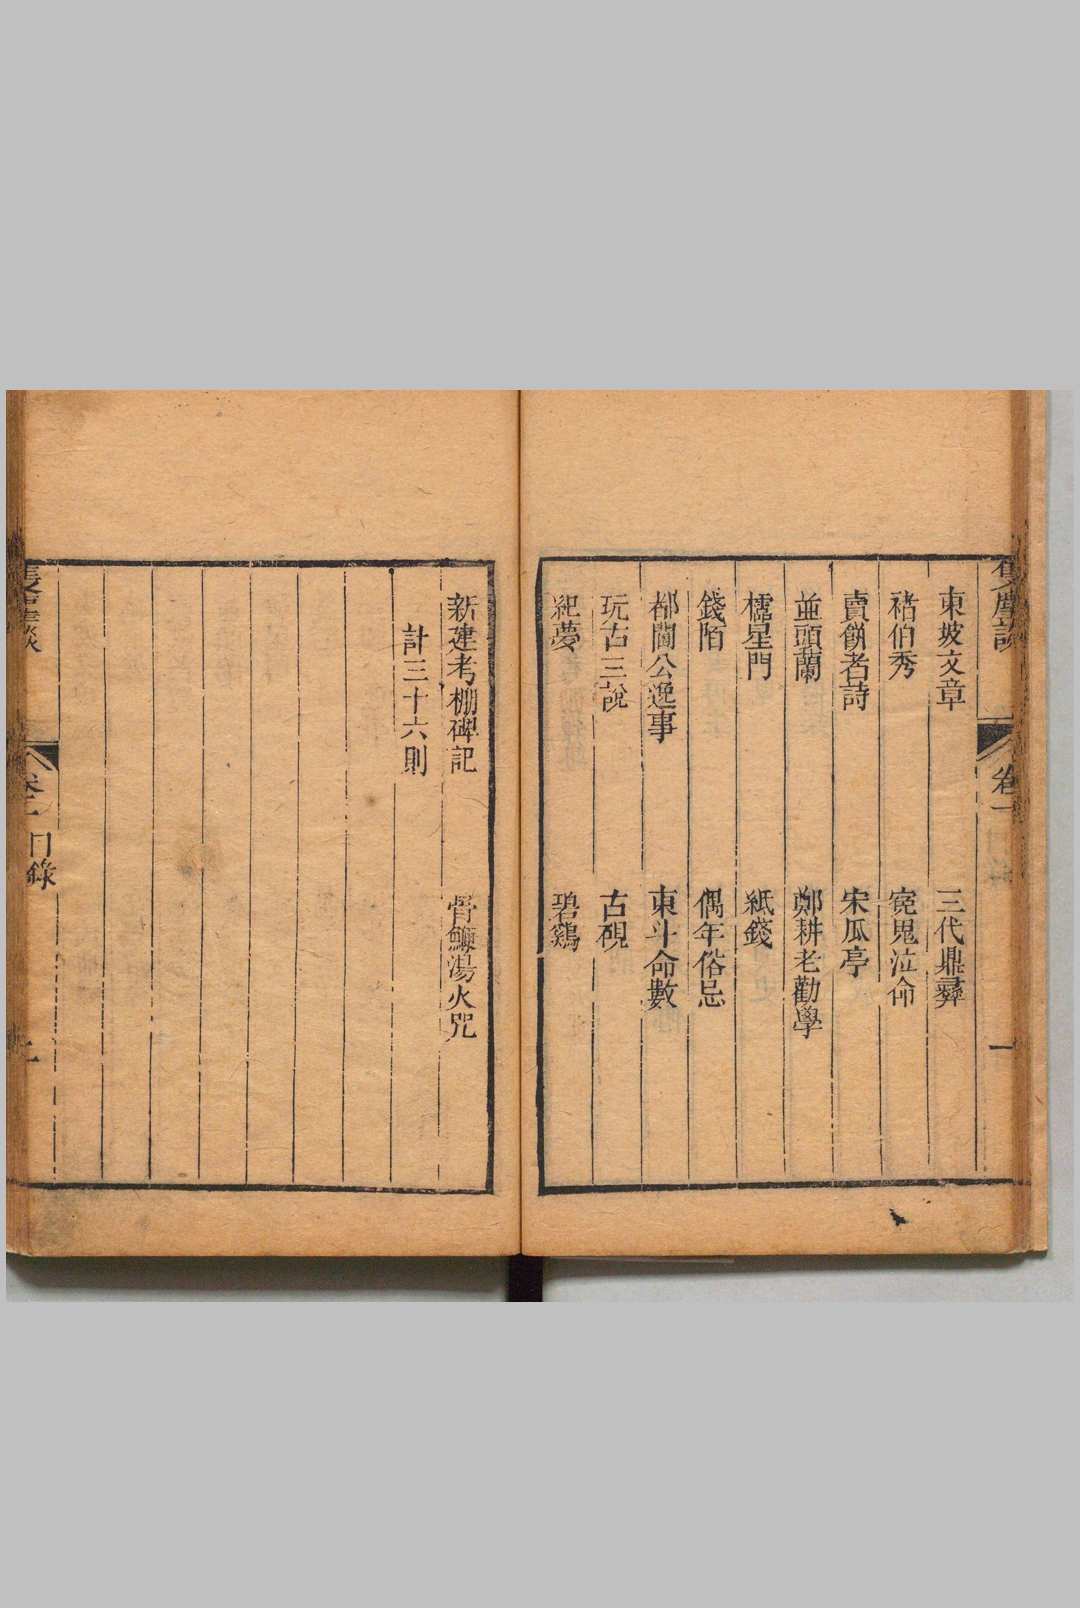 東坡文章 三代鼎彝
褚伯秀 寃鬼泣命
賣餅者詩 宋瓜亭
並頭蘭 鄭耕老勸學
櫺星門 紙錢
錢陌 偶年俗忌
都閫公逸事 東斗命數
玩古三說 古硯
紀夢 碧鷄
新建考棚碑記 骨鯁湯火咒
計三十六則
卷一 目錄